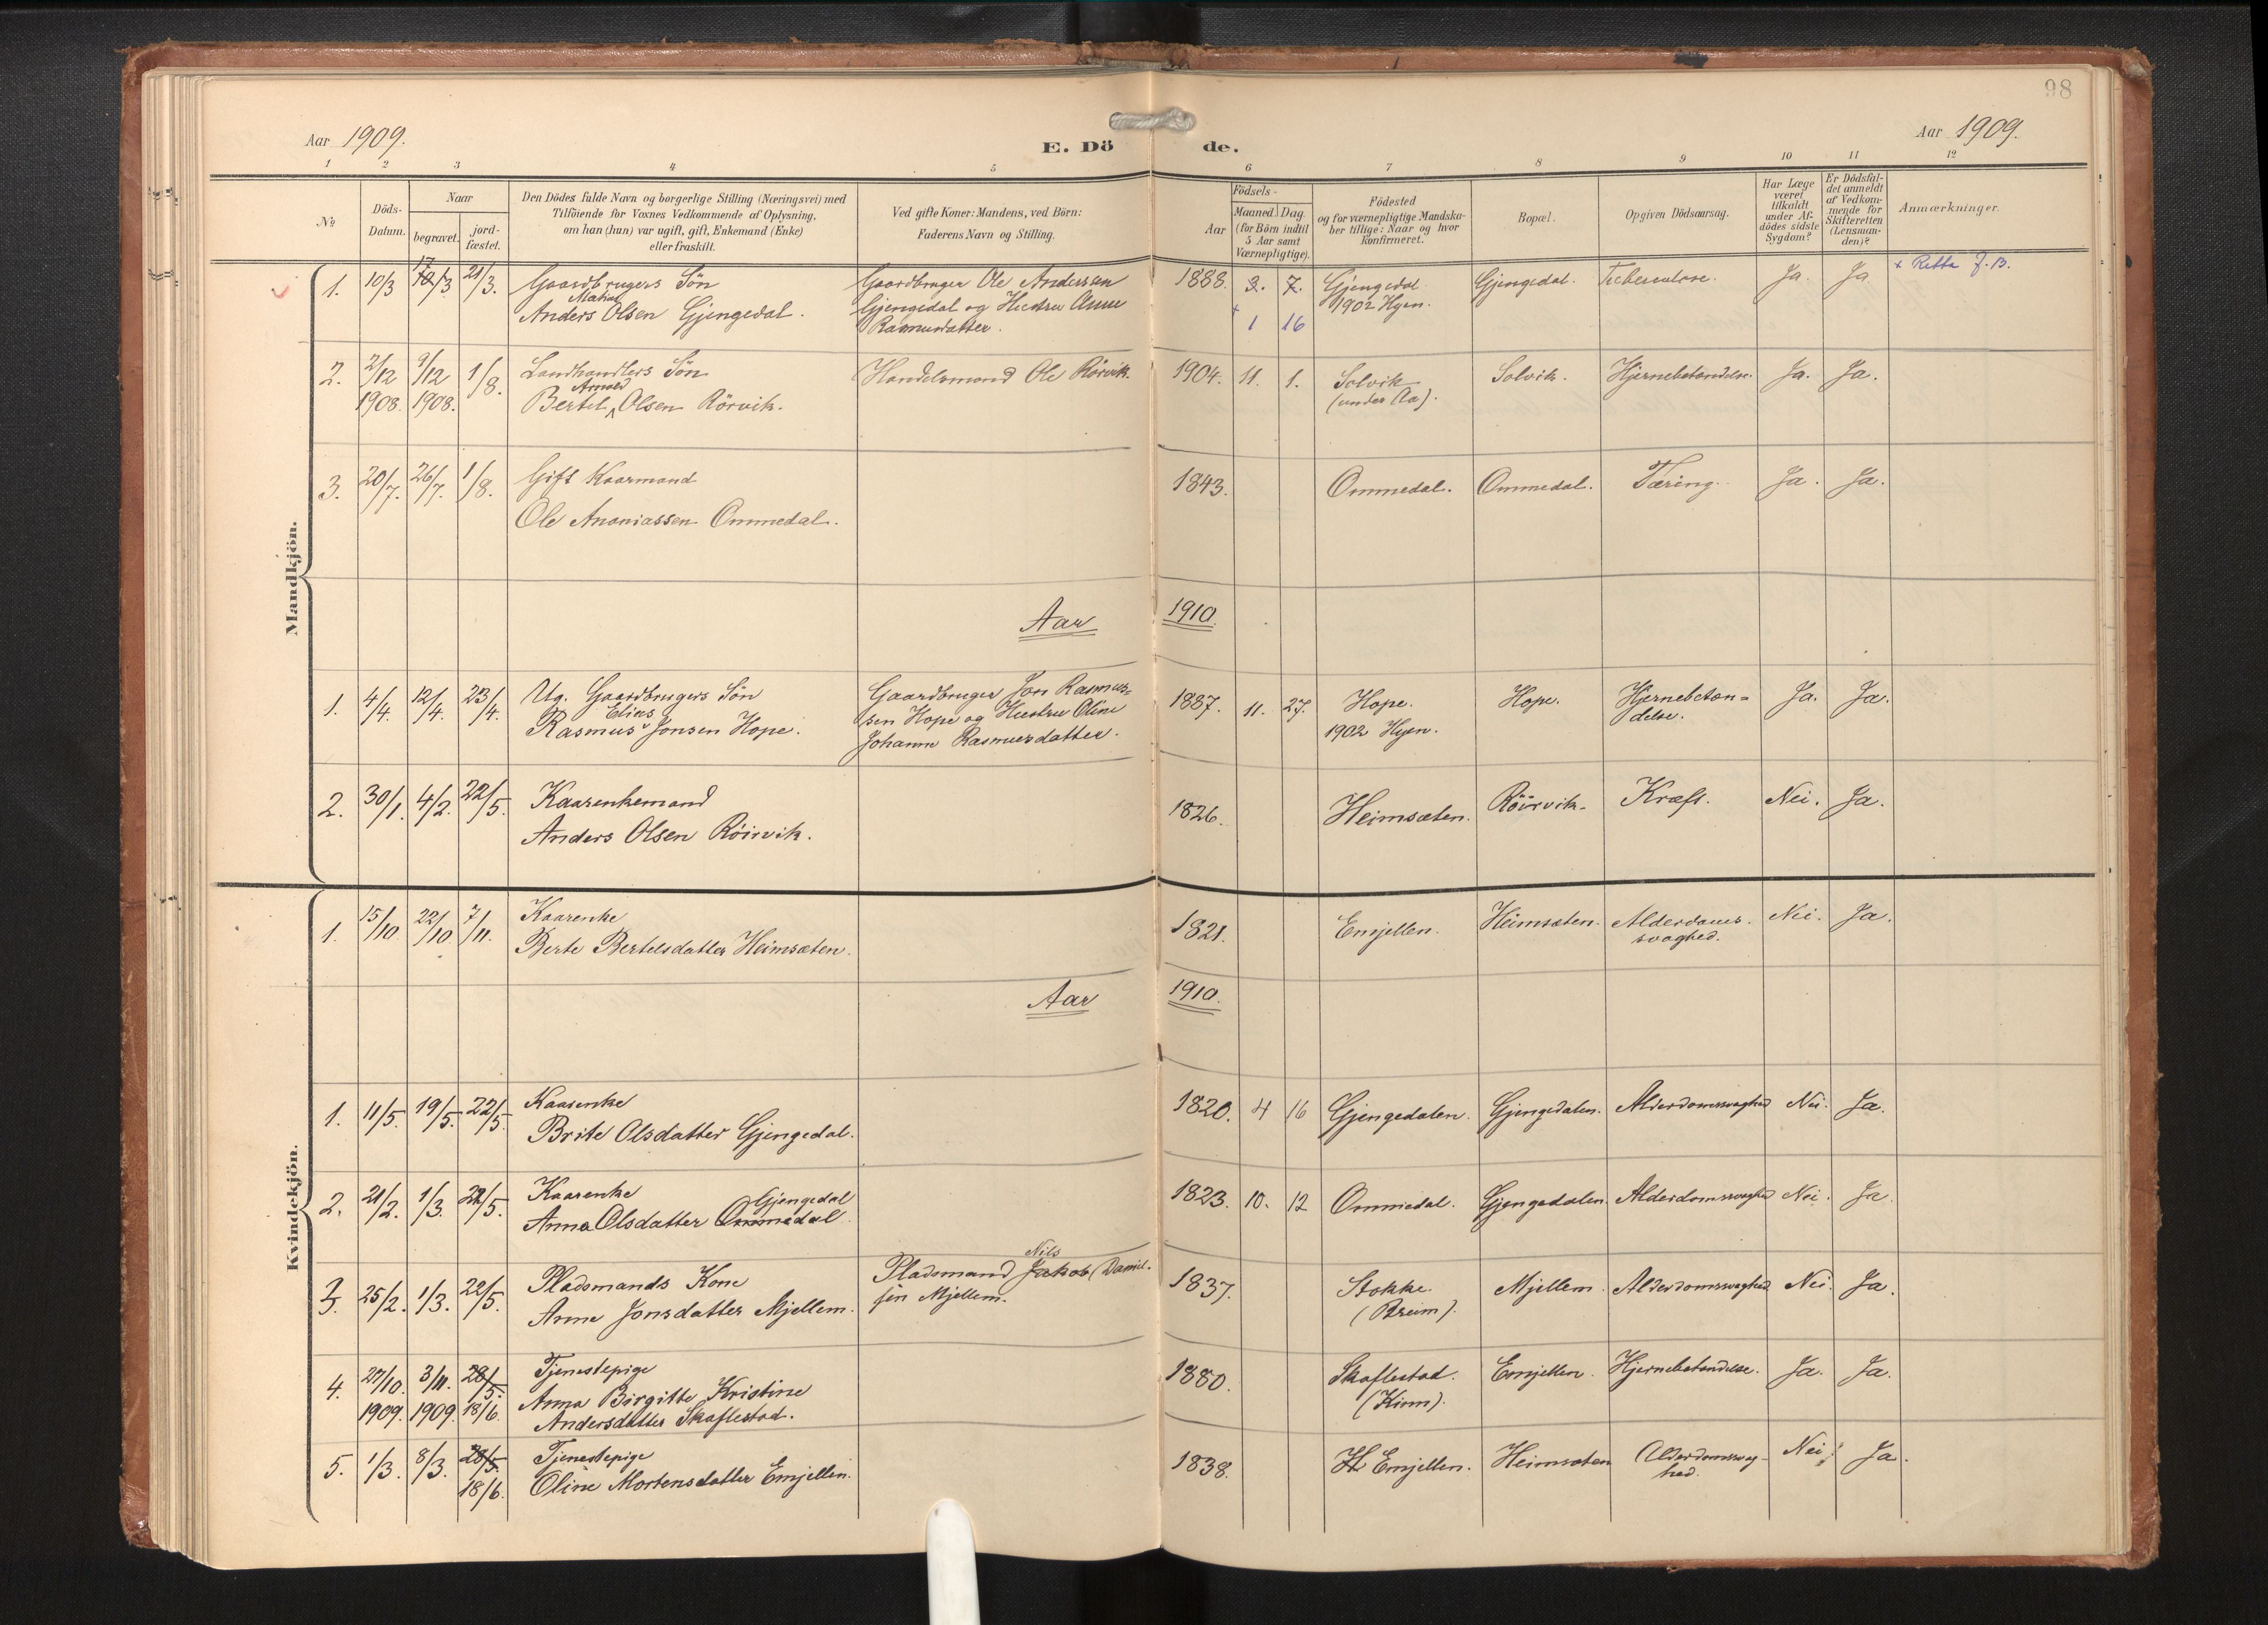 98
Aar 1909.
E. Dö de.
Aar 1909.
1 2 3 4 5 6 7 8 9 10 11 12
No
Döds-Datum.
Naar
begravet.
jord-fæstet.
Den Dödes fulde Navn og borgerlige Stilling (Næringsvei) med
Tilföiende for Voxnes Vedkommende af Oplysning,
om han (hun) var ugift, gift, Enkemand (Enke)
eller fraskilt.
Ved gifte Koner: Mandens, ved Börn:
Faderens Navn og Stilling.
Födsels-
Aar
Maaned. Dag.
(for Börn indtil
5 Aar samt
Værnepligtige).
Födested
og for værnepligtige Mandska-
ber tillige: Naar og hvor
konfirmeret.
Bopæl.
Opgiven Dödsaarsag.
Har Læge
været
tilkaldt
under Af-
dödes sidste
Sygdom?
Er Dödsfal-
det anmeldt
af Vedkom-
mende for
Skifteretten
(Lensman-
den)?
Anmærkninger.
Mandkjön.
1. 10/3 17/3 21/3. Gaardbrugers Sön Gaardbruger Ole Anderssen 1888. 3. 7. Gjengedal Gjengedal. Tuberculose. Ja. Ja + Retta J. B.
Anders Olsen Gjengedal. Gjengedal og Hustru Anne + 1 16 1902 Hyen.
Rasmusdatter.
2. 2/12 9/12 1/8. Landhandlers Sön Handelsmand Ole Rörvik. 1904. 11. 1. Solvik Solvik. Hjernebetændelse. Ja. Ja.
Arnold
1908. 1908. Bertel Olsen Rörvik. (under Aa).
3. 20/7. 26/7. 1/8. Gift Kaarmand 1843. Ommedal. Ommedal. Tæring. Ja. Ja.
Ole Ananiassen Ommedal.
Aar 1910.
1. 4/4. 12/4. 23/4. Ug. Gaardbrugers Sön Gaardbruger Jon Rasmus- 1887. 11. 27. Hope. Hope. Hjernebetæn- Ja. Ja.
Elias
Rasmus Jonsen Hope. sen Hope og Hustru Oline 1902 Hyen. delse.
Johanne Rasmusdatter.
2. 30/1. 4/2. 22/5. Kaarenkemand 1826. Heimsæten. Röirvik. Kræft. Nei. Ja.
Anders Olsen Röirvik.
Kvindekjön.
1. 15/10 22/10 7/11. Kaarenke 1821. Emjellen. Heimsæten. Alderdoms- Nei. Ja.
Berte Bertelsdatter Heimsæten. svaghed.
Aar 1910.
1. 11/5. 19/5. 22/5. Kaarenke 1820. 4 16 Gjengedalen. Gjengedalen. Alderdomssvaghed Nei. Ja.
Brite Olsdatter Gjengedal.
2. 21/2. 1/3. 22/5. Kaarenke 1823. 10. 12 Ommedal. Gjengedalen. Alderdomssvaghed Nei. Ja
Gjengedal
Anna Olsdatter Ommedal
3. 25/2. 1/3. 22/5. Pladsmands Kone Pladsmand Jakob Daniel- 1837. Stokke Mjellem. Alderdomssvaghed Nei. Ja.
Nils
Anne Jonsdatter Mjellem. sen Mjellem. (Breim).
4. 27/10. 3/11. 28/5. Tjenestepige 1880. Skaflestad. Emjellen. Hjernebetændelse. Ja. Ja.
1909. 1909. 18/6. Anna Birgitte Kristine (Kinn).
Andersdatter Skaflestad.
5. 1/3. 8/3. 28/5. Tjenestepige 1838. H Emjellen. Heimsæten Alderdomssvag- Nei. Ja.
18/6. Oline Mortensdatter Emjellen. hed.